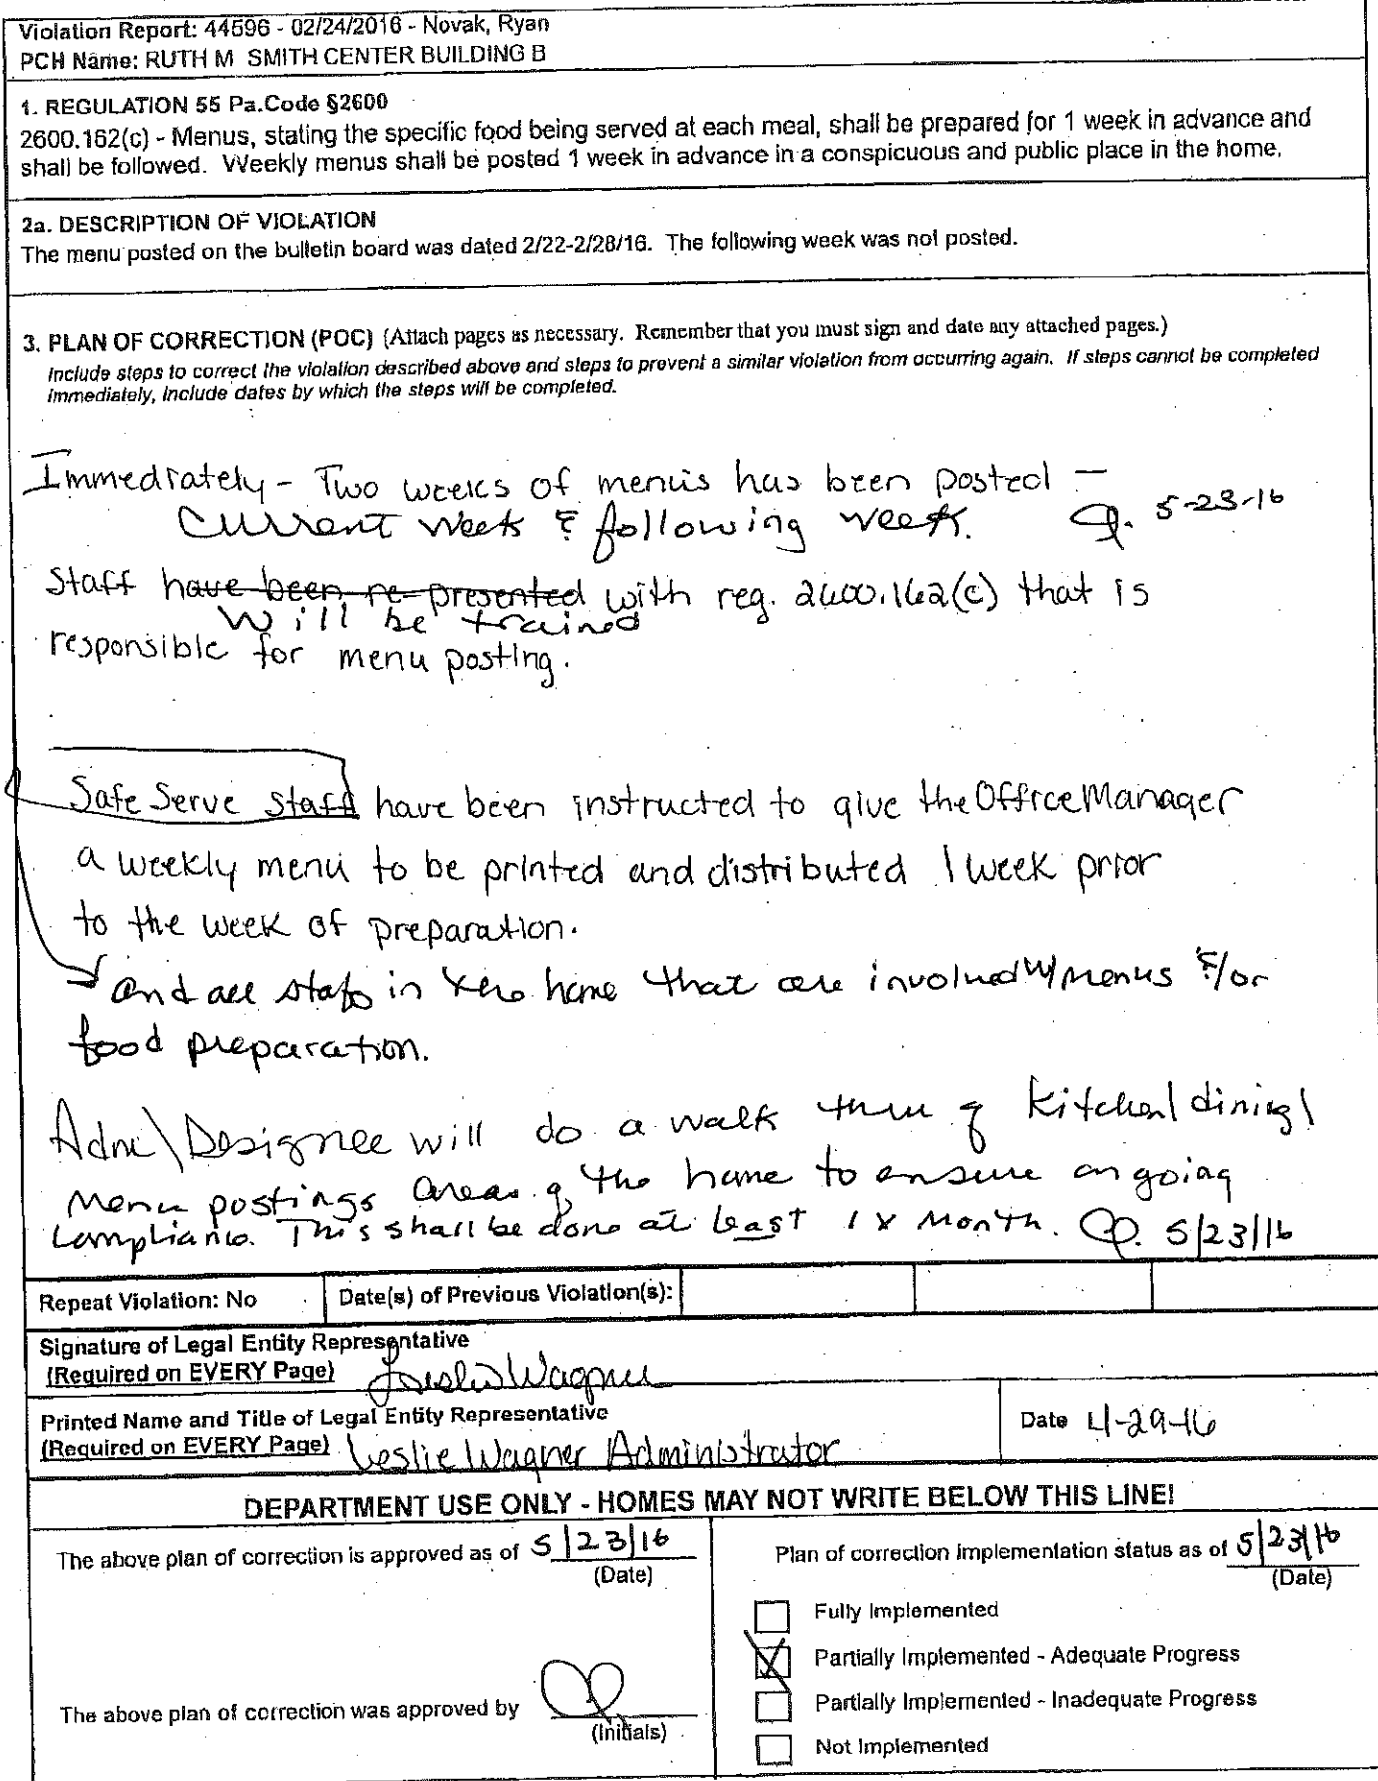 Violation Report: 44596 - 02/24/2016 - Novak, Ryan
PCH Name: RUTH M SMITH CENTER BUILDING B
1. REGULATION 55 Pa.Code §2600
2600.162(c) - Menus, stating the specific food being served at each meal, shall be prepared for 1 week in advance and
shall be followed. Weekly menus shall be posted 1 week in advance in a conspicuous and public place in the home.
2a. DESCRIPTION OF VIOLATION
The menu posted on the bulletin board was dated 2/22-2/28/16. The following week was not posted.
3. PLAN OF CORRECTION (POC) (Attach pages as necessary. Remember that you must sign and date any attached pages.)
Include steps to correct the violation described above and steps to prevent a similar violation from occurring again. If steps cannot be completed
immediately, include dates by which the steps will be completed.
Immediately - Two weeks of menus has been posted -
current week & following week. 5-23-16
Staff have been re-presented with reg. 2600.162(c) that is
will be trained
responsible for menu posting.
Safe Serve Staff have been instructed to give the Office Manager
a weekly menu to be printed and distributed 1 week prior
to the week of preparation.
and all staff in the home that are involved w/ menus &/or
food preparation.
Adm\Designee will do a walk thru of kitchen\dining\
menu postings areas of the home to ensure ongoing
compliance. This shall be done at least 1x month. 5/23/16
Repeat Violation: No Date(s) of Previous Violation(s):
Signature of Legal Entity Representative
(Required on EVERY Page) Leslie Wagner
Printed Name and Title of Legal Entity Representative
(Required on EVERY Page) Leslie Wagner Administrator Date 4-29-16
DEPARTMENT USE ONLY - HOMES MAY NOT WRITE BELOW THIS LINE!
The above plan of correction is approved as of 5/23/16
(Date)
Plan of correction implementation status as of 5/23/16
(Date)
Fully Implemented
Partially Implemented - Adequate Progress
Partially Implemented - Inadequate Progress
Not Implemented
The above plan of correction was approved by
(Initials)